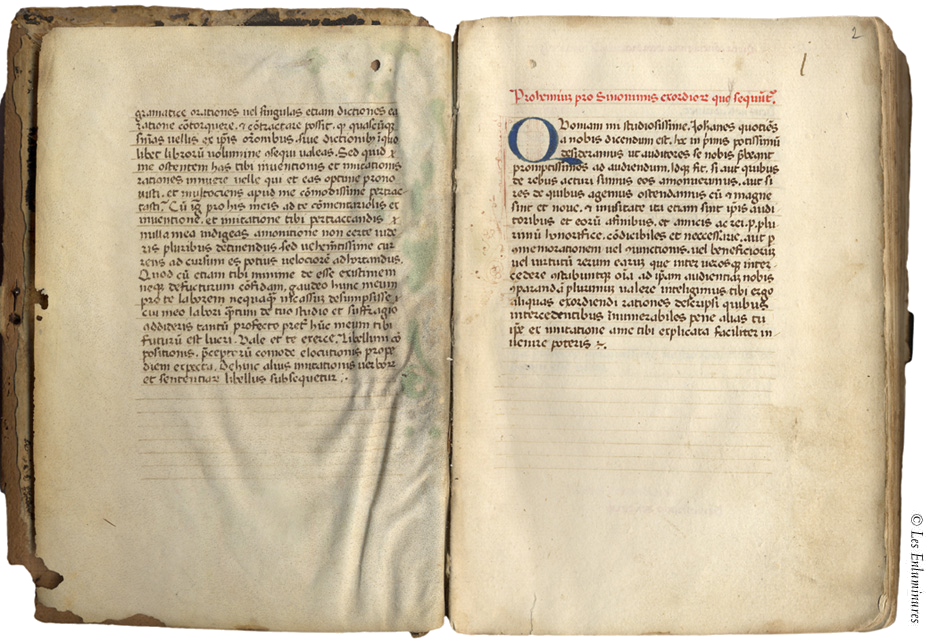 gramatice orationes uel singulas etiam dictiones ea
ratione cōtorquere, ⁊ cōtractare possit, ꝙ quascūqꝫ
sn̄ias uellis ex ip̄is or̄onibus, siue dictionibꝫ ī quo
libet librorū uolumine ɔsequi ualeas. Sed quid
me ostentem has tibi inuentionis et imitationis
rationes innuere uelle qui et eas optime prono
uisti, et multociens apud me cōmodissime pertrac
tasti. Cū igͥ pro his meis ad te cōmentariolis et
inuentione, et imitatione tibi pertractandis
nulla mea indigeas amonitione non certe uide
ris pluribus detinendus sed uehemētissime cur
rens ad cursum es potius uelociorē adhortandus.
Quod cū etiam tibi minime de esse existimem
neqꝫ defucturum confidam, gaudeo hunc meum
pro te laborem nequaqꝫ īcassum desumpsisse
cui meo labori qͣntum de tuo studio et suffragio
addideris tantū profecto pret̄ hūc meum tibi
futurū est lucri. Vale et te exerce. Libellum cō
positionis, p̄ceptorū comode elocutionis prope
diem expecta. Dehinc alius imitationis uerborꝝ
et sententiarꝫ libellus subsequetur.
2
1
Prohemiuꝫ pro Sinonimis exordiorꝝ que sequūt᷑.
QVoniam mi studiosissime Johanes quotiēs
a nobis dicendum est, hec in p̄mis potissimū
desideramus ut auditores se nobis p̄beant
promptissimos ad audiendum. Idqꝫ fit, si aut quibus
de rebus acturi simus eos amonuerimus, aut si
res de quibus agemus ostendamus cū ⁊ magne
sint et noue, ⁊ inusitate uti etiam sint ip̄is audi
toribus et eorū affinibus, et amicis ac rei.p. plu
rimū honorifice, cōdicibiles et neccessarie, aut p
ɔmemorationem uel ⁊ munctionis, uel beneficiorū
uel uirtutū rerum earuꝫ que inter utrosqꝫ inter
cedere ɔstabuntqꝫ oīa ad ip̄am audientiā nobis
ɔparandā plurimū ualere inteligimus tibi ergo
aliquas exordiendi rationes descripsi quibus
intercedentibus īnumerabiles pene alias tu
ip̄e ex imitatione a me tibi explicata faciliter in
uenire poteris
© Les Enluminures